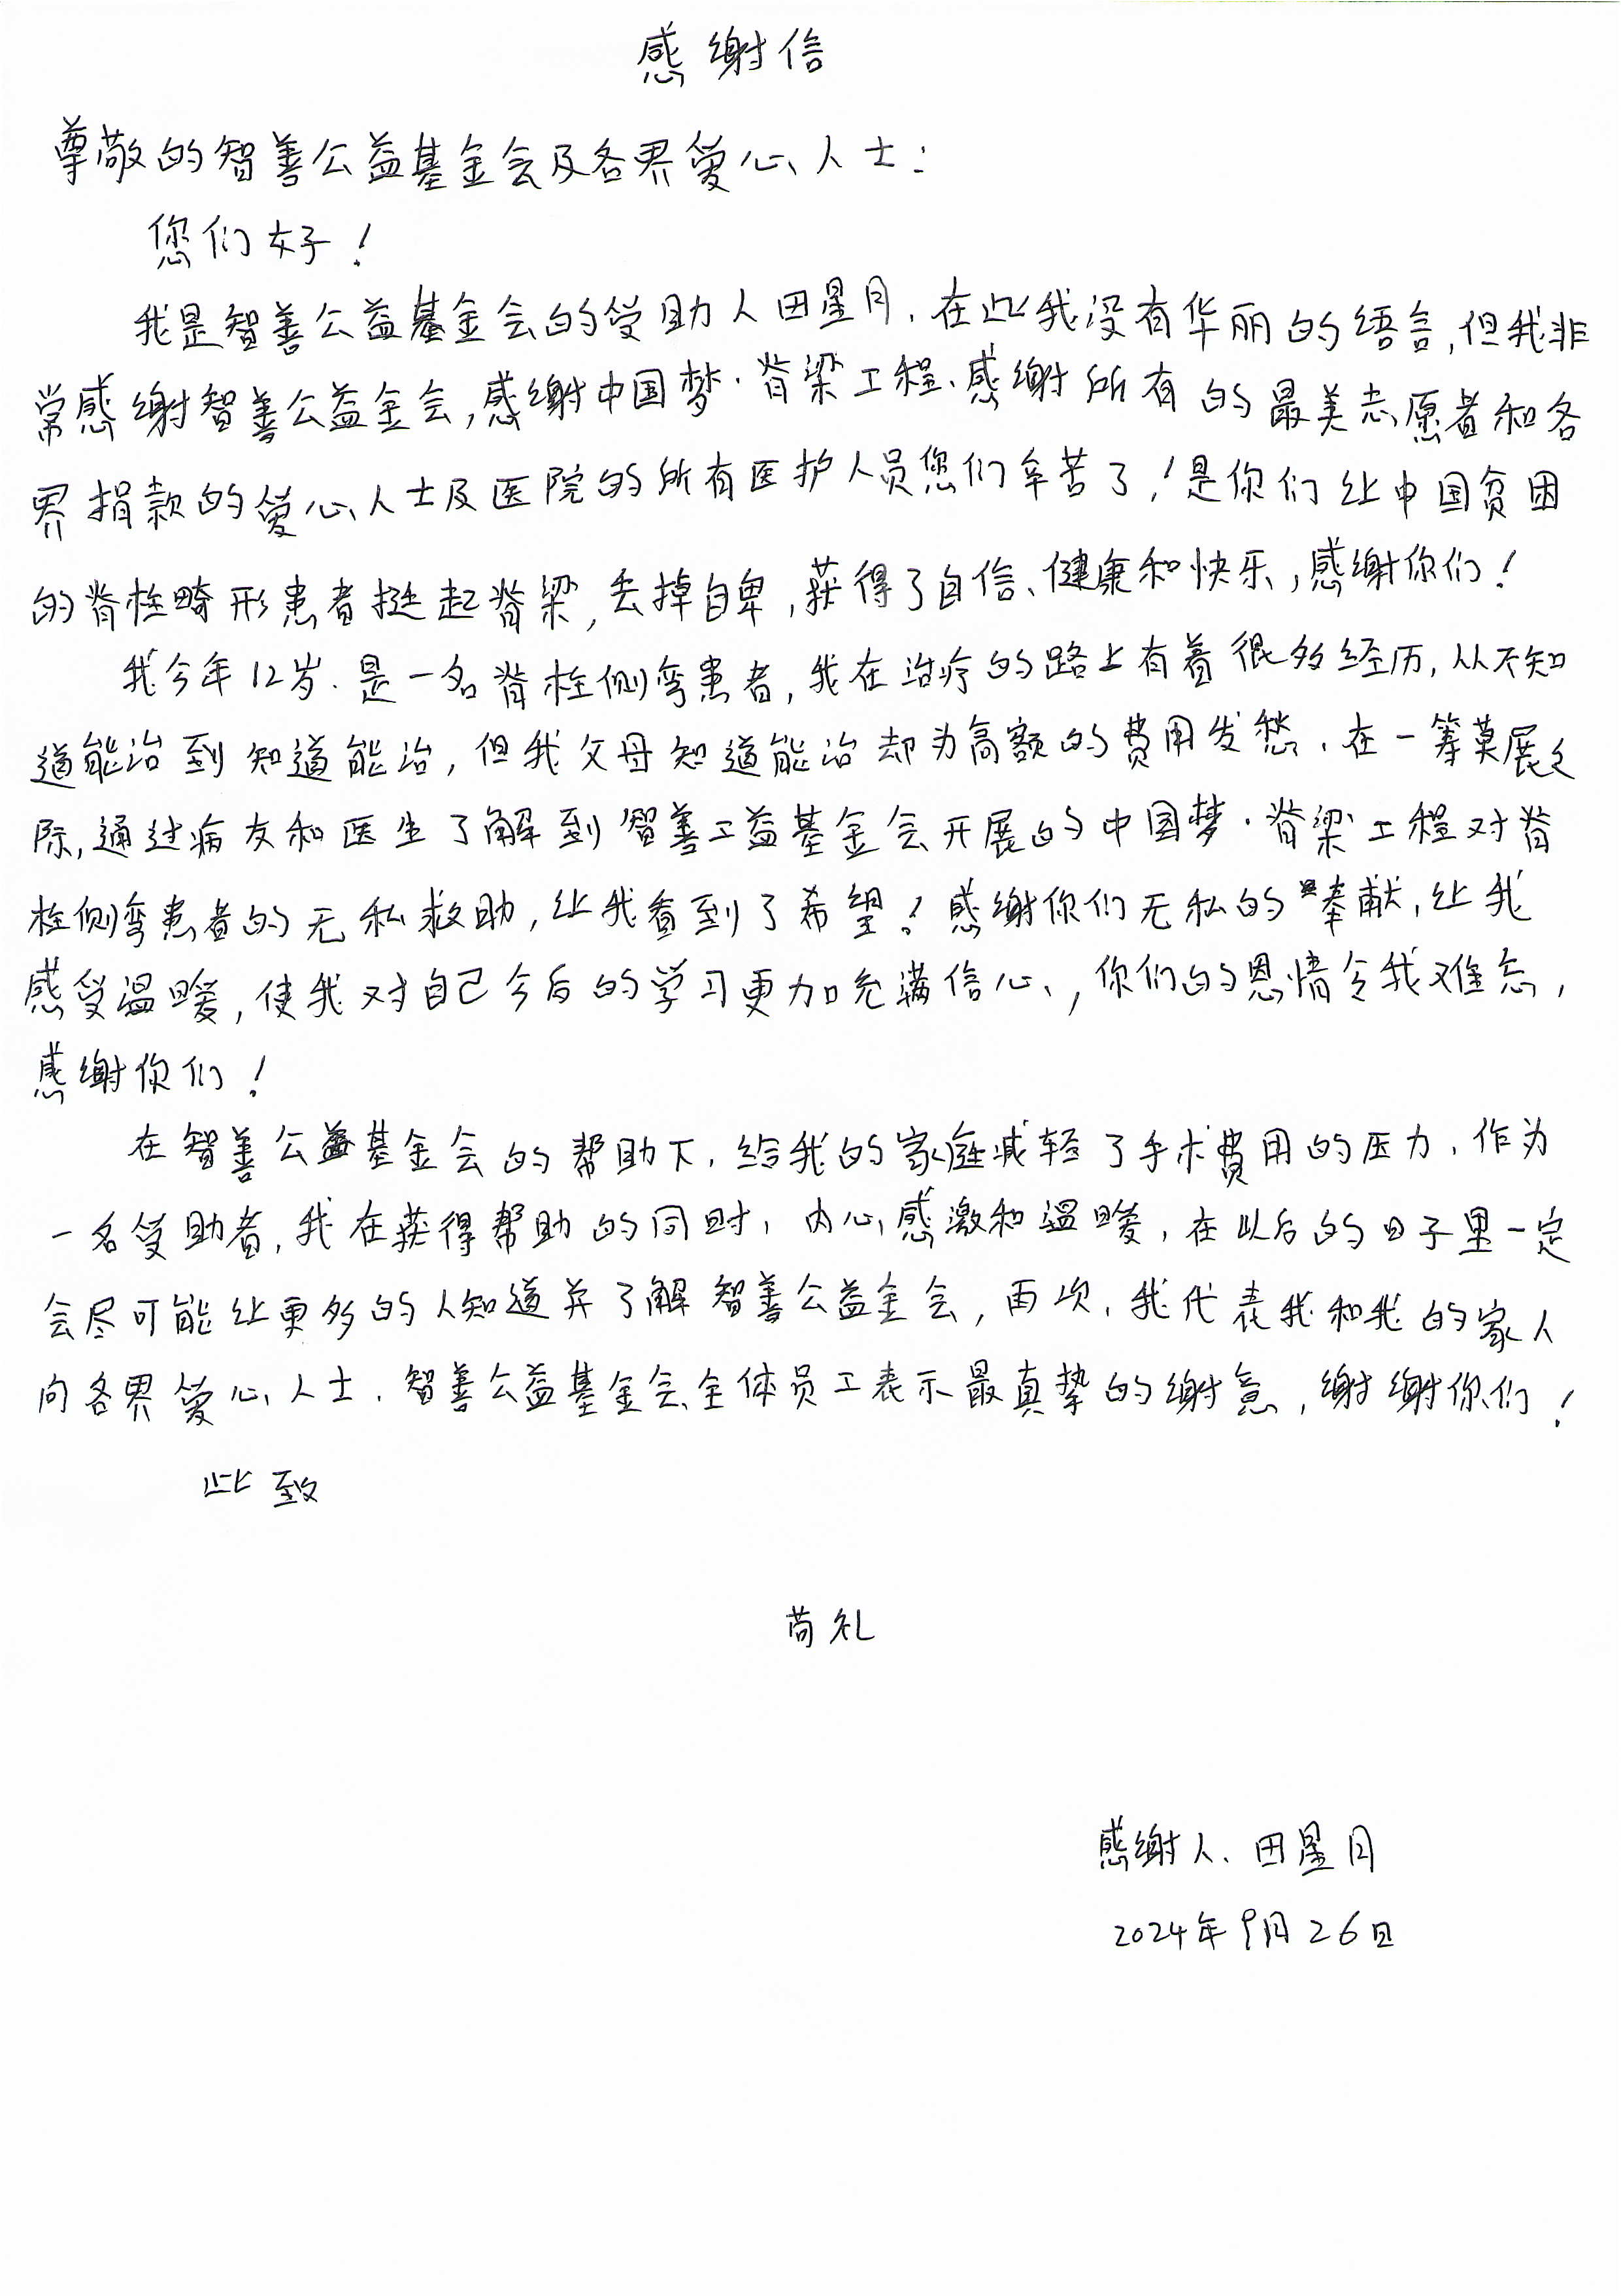 感谢信
尊敬的智善公益基金会及各界爱心人士：
您们好！
我是智善公益基金会的受助人田星月，在此我没有华丽的语言，但我非
常感谢智善公益金会，感谢中国梦·脊梁工程、感谢所有的最美志愿者和各
界捐款的爱心人士及医院的所有医护人员您们辛苦了！是你们让中国贫困
的脊柱畸形患者挺起脊梁，丢掉自卑，获得了自信、健康和快乐，感谢你们！
我今年12岁、是一名脊柱侧弯患者，我在治疗的路上有着很多经历，从不知
道能治到知道能治，但我父母知道能治却为高额的费用发愁、在一筹莫展之
际，通过病友和医生了解到智善工益基金会开展的中国梦·脊梁工程对脊
柱侧弯患者的无私救助，让我看到了希望！感谢你们无私的奉献，让我
感受温暖，使我对自己今后的学习更加充满信心，你们的恩情令我难忘，
感谢你们！
在智善公益基金会的帮助下，给我的家庭减轻了手术费用的压力，作为
一名受助者，我在获得帮助的同时，内心感激和温暖，在以后的日子里一定
会尽可能让更多的人知道并了解智善公益金会，再次，我代表我和我的家人
向各界爱心人士、智善公益基金会全体员工表示最真挚的谢意，谢谢你们！
此致
苟礼
感谢人、田星月
2024年9月26日